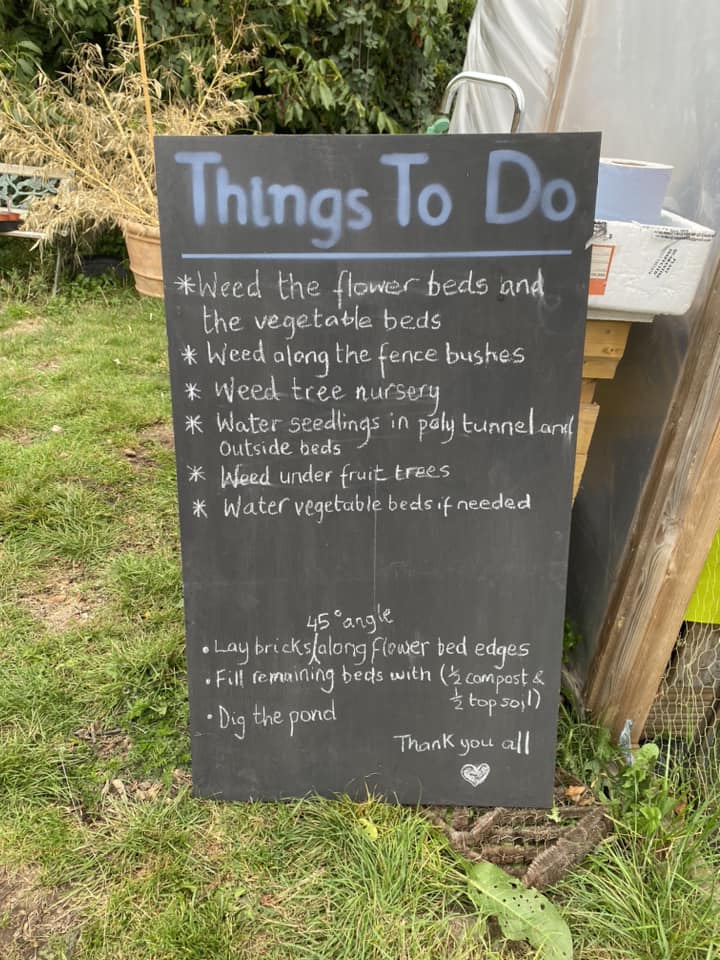 Things To Do
*Weed the flower beds and
the vegetable beds
* Weed along the fence bushes
* Weed tree nursery
* Water seedlings in poly tunnel and
outside beds
* Weed under fruit trees
* Water vegetable beds if needed
45° angle
• Lay bricks along flower bed edges
• Fill remaining beds with (½ compost &
½ top soil)
• Dig the pond
Thank you all